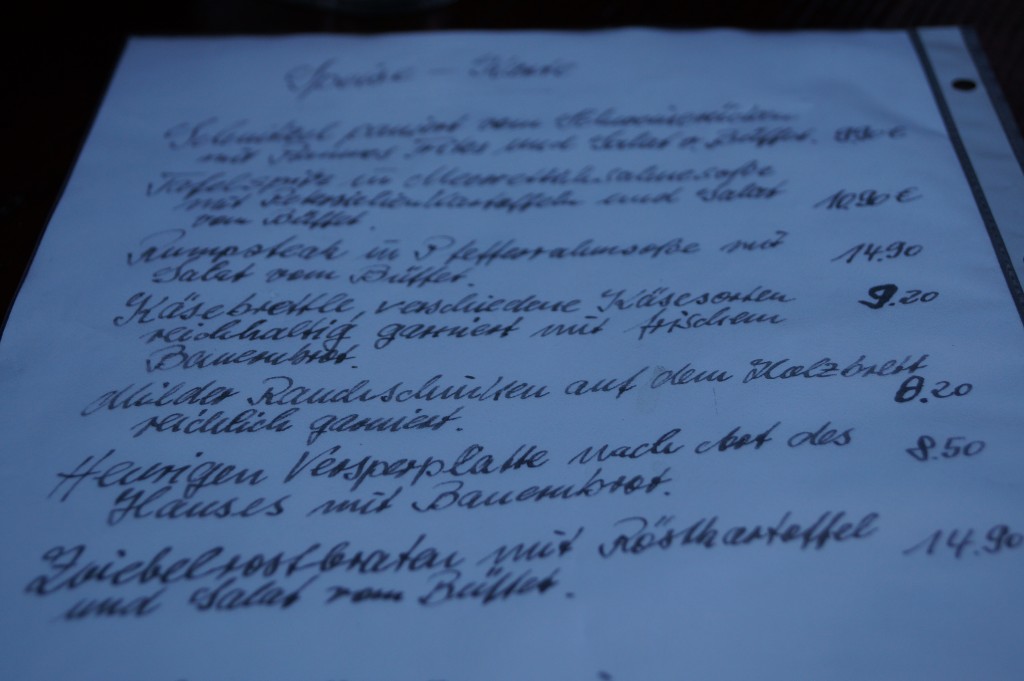 Speise - Karte
Schnitzel paniert vom Schweinerücken
mit Pommes Frites und Salat v. Büffet. 8.90 €
Tafelspitz in Meerrettichsahnesoße
mit Petersilienkartoffeln und Salat 10.90 €
vom Büffet.
Rumpsteak in Pfefferrahmsoße mit 14.90
Salat vom Büffet.
Käsebrettle, verschiedene Käsesorten 9.20
reichhaltig garniert mit frischem
Bauernbrot.
Milder Rauchschinken auf dem Holzbrett
reichlich garniert. 8.20
Heurigen Versperplatte nach Art des 8.50
Hauses mit Bauernbrot.
Zwiebelrostbraten mit Röstkartoffel 14.90
und Salat vom Büffet.